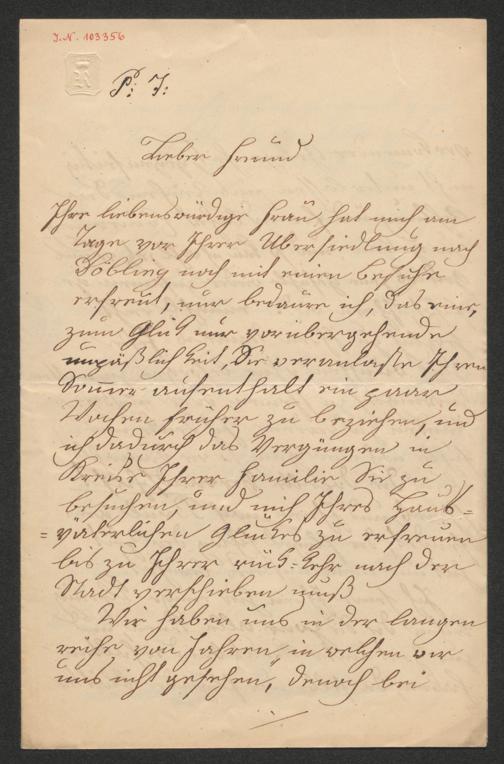 I.N. 103356
P: T:
Lieber Freund
Ihre liebenswürdige Frau hat mich am
Tage vor Ihrer Übersiedlung nach
Döbling noch mit einen besuche
erfreut, nur bedaure ich, das eine,
zum Glük nur vorübergehende
unpäßlichkeit, Sie veranlaßte Ihren
Sommer aufenthalt ein paar
Wochen früher zu beziehen, und
ich dadurch das Vergüngen in
Kreise Ihrer Familie Sie zu
besuchen, und mich Ihres Haus=
=väterlichen Glückes zu erfreuen
bis zu Ihrer rück=kehr nach der
Stadt verschieben muß
Wir haben uns in der langen
reihe von Jahren, in welchen wir
uns nicht gesehen, denoch bei